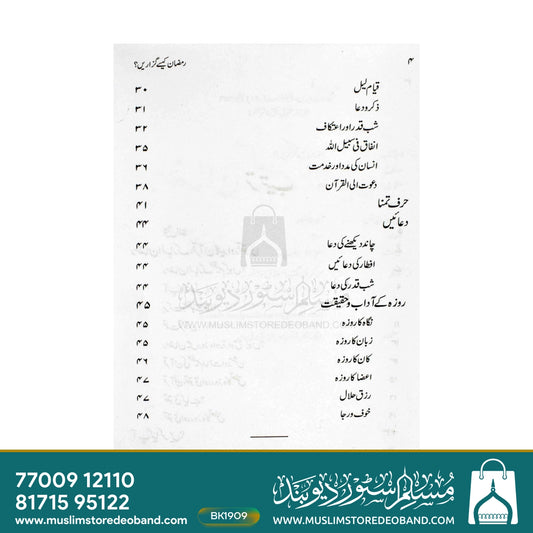 ۴ رمضان کیسے گزاریں؟
قیام لیل ۳۰
ذکر و دعا ۳۱
شب قدر اور اعتکاف ۳۲
انفاق فی سبیل اللہ ۳۵
انسان کی مدد اور خدمت ۳۶
دعوت الی القرآن ۳۸
حرف تمنا ۴۱
دعائیں ۴۴
چاند دیکھنے کی دعا ۴۴
افطار کی دعائیں ۴۴
شب قدر کی دعا ۴۴
روزہ کے آداب و حقیقت ۴۵
نگاہ کا روزہ ۴۵
زبان کا روزہ ۴۵
کان کا روزہ ۴۶
اعضا کا روزہ ۴۷
رزق حلال ۴۷
خوف و رجا ۴۸
مسلم سٹور دیوبند
WWW.MUSLIMSTOREDEOBAND.COM
77009 12110
81715 95122
www.muslimstoredeoband.com
BK1909
مسلم سٹور دیوبند
WWW.MUSLIMSTOREDEOBAND.COM